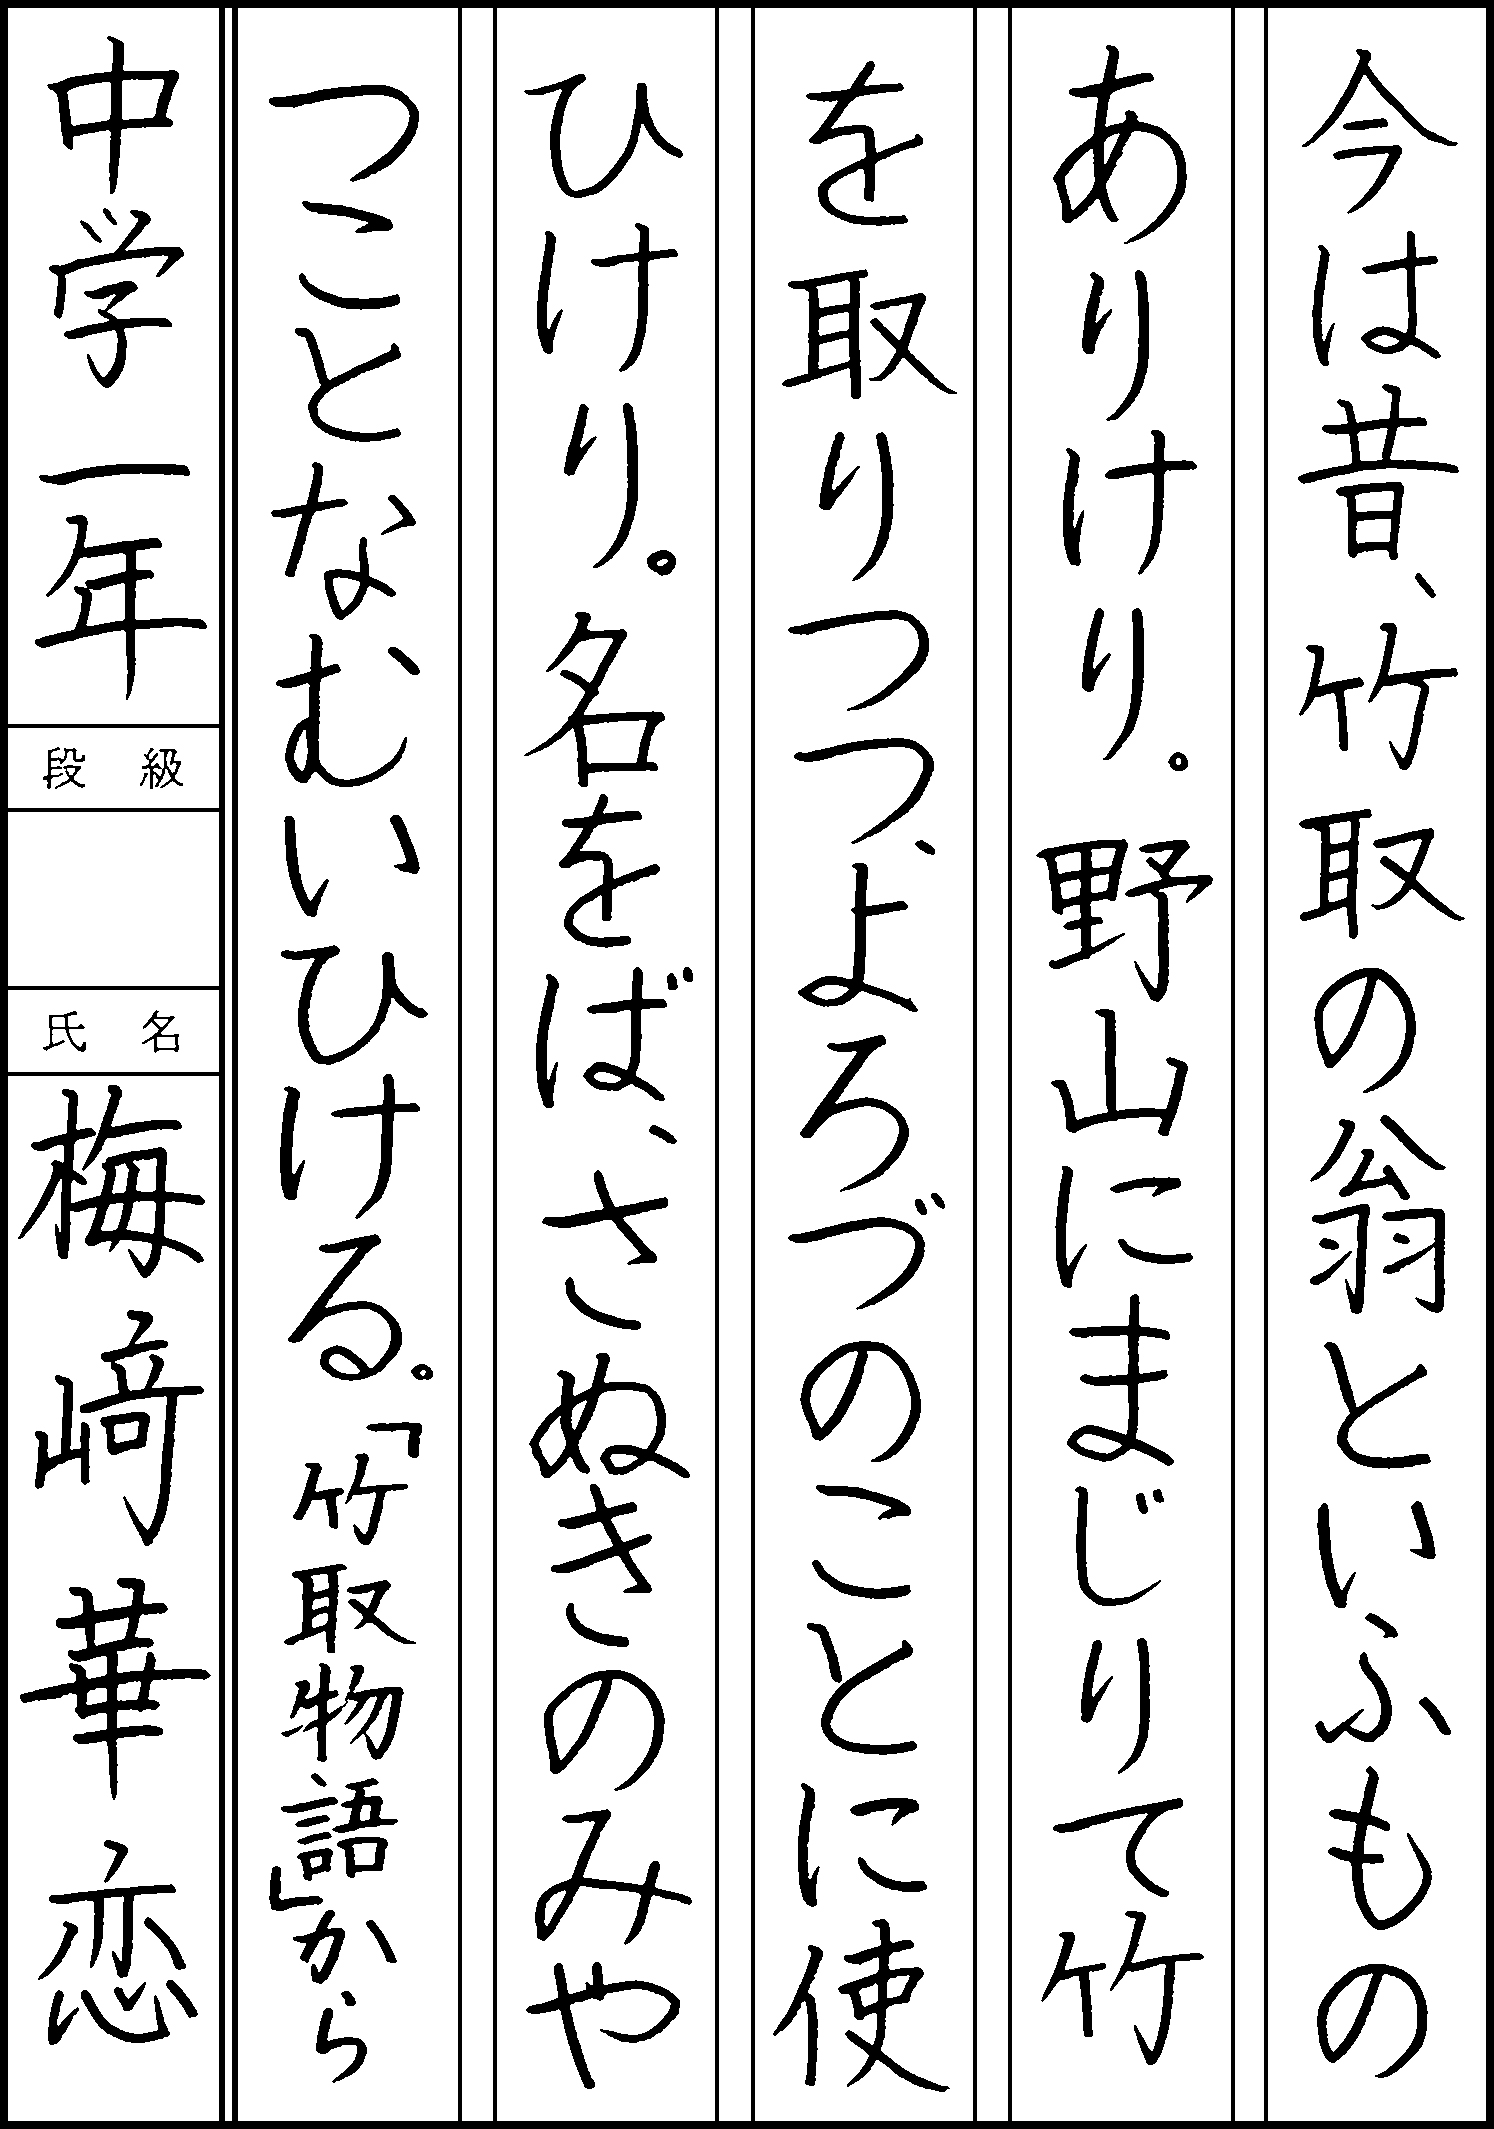 今は昔、竹取の翁といふもの
ありけり。野山にまじりて竹
を取りつつ、よろづのことに使
ひけり。名をば、さぬきのみや
つことなむいひける。「竹取物語」から
中学一年
段級
氏名
梅﨑華恋